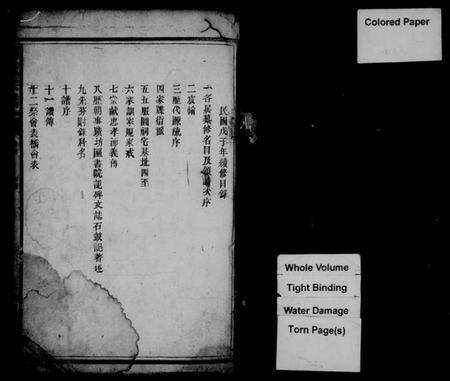 民國戊子年續修目錄
一各居續修名目及領譜次序
二哀輓
三歷代源流序
四家廟宿派
五五服圖祠宅基址四至
六家訓家規家戒
七宗獻忠孝節義傳
八歷朝事蹟坊匾書院記碑文誌石鼓記著述
九先芬附錄科名
十譜序
十一譜傳
十二祭會表橋會表
Colored Paper
Whole Volume
Tight Binding
Water Damage
Torn Page(s)